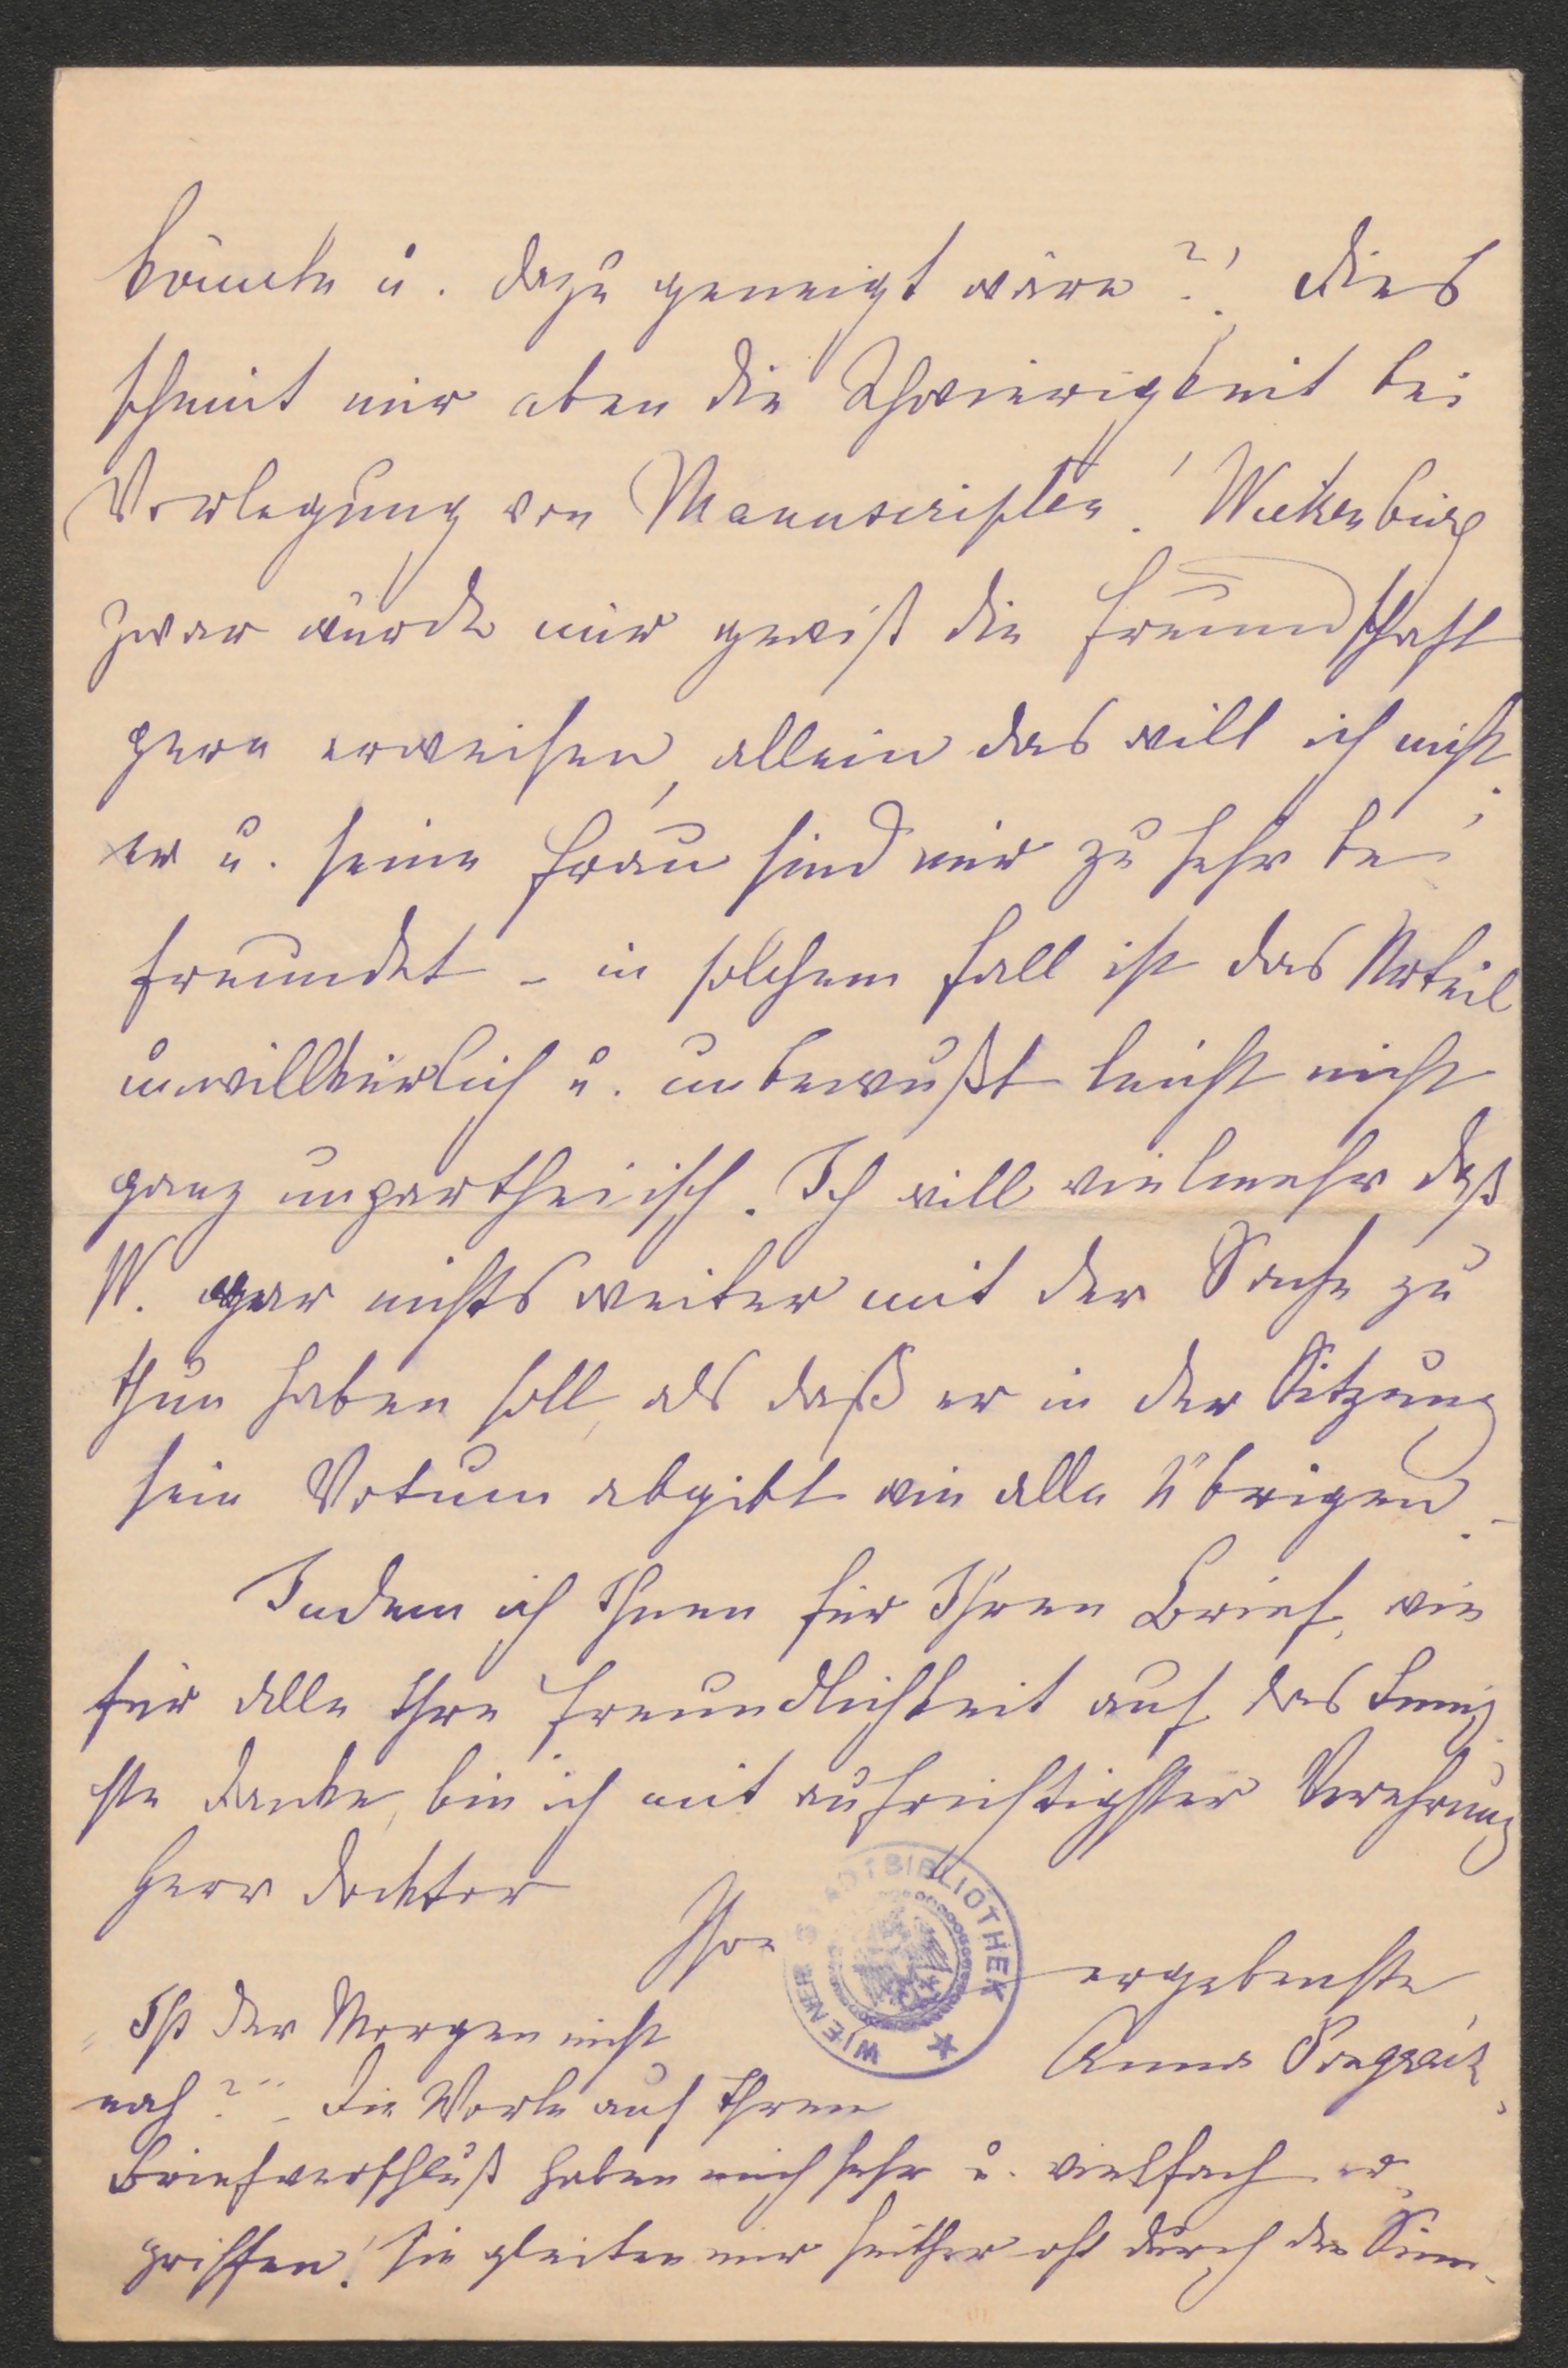 könnte u. dazu geneigt wäre?! Dies
scheint mir eben die Schwierigkeit bei
Vorlegung von Manuscripten! Wickenburg
zwar würde mir gewiß die Freundschaft
gern erweisen, allein das will ich nicht;
er u. seine Frau sind mir zu sehr be-
freundet – in solchem Fall ist das Urteil
unwillkürlich u. unbewußt leicht nicht
ganz unpartheiisch. Ich will vielmehr daß
W. gar nichts weiter mit der Sache zu
thun haben soll, als daß er in der Sitzung
sein Votum abgibt wie alle Übrigen. –
Indem ich Ihnen für Ihren Brief, wie
für alle Ihre Freundlichkeit auf das Innig-
ste danke, bin ich mit aufrichtigster Verehrung
Herr Docktor
Ihre
ergebenste
Anna
WIENER STADTBIBLIOTHEK
„Ist der Morgen nicht
nah?" – Die Worte auf Ihrem
Briefverschluß haben mich sehr u. vielfach er-
griffen! Sie gleiten mir seither oft durch den Sinn.